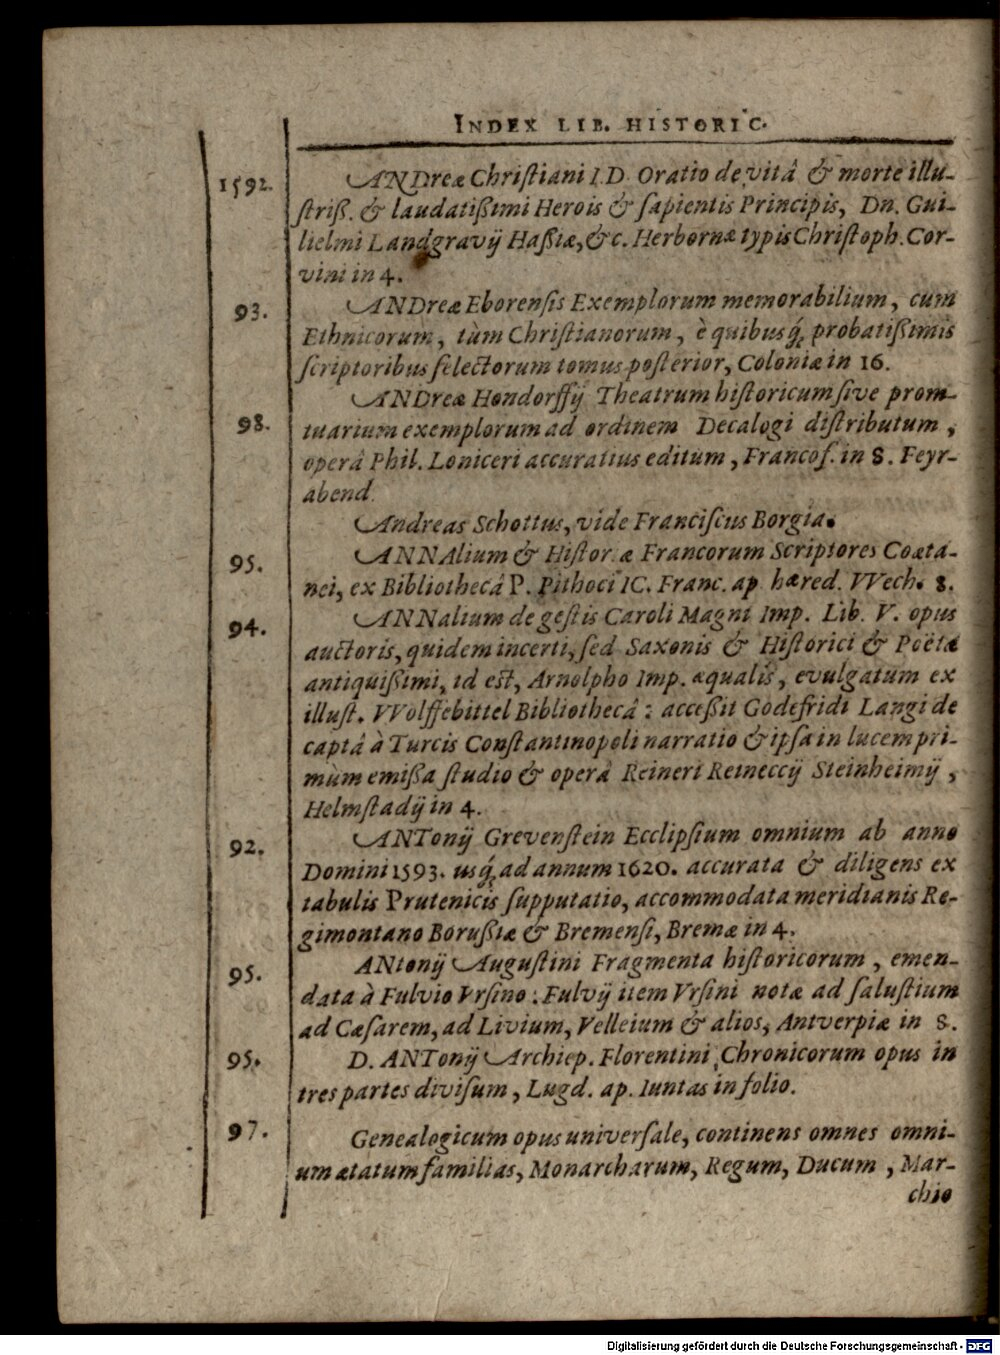 INDEX LIB. HISTORIC.
1592. ANDreæ Christiani I.D. Oratio de vitâ & morte illu-
ſtriß. & laudatißimi Herois & ſapientis Principis, Dn. Gui-
lielmi Landgravij Haßiæ, &c. Herbornæ typis Chriſtoph. Cor-
vini in 4.
93. ANDreæ Eborenſis Exemplorum memorabilium, cum
Ethnicorum, tùm Chriſtianorum, è quibusq́; probatißimis
ſcriptoribus ſelectorum tomus poſterior, Coloniæ in 16.
ANDreæ Hondorffij Theatrum hiſtoricum ſive prom-
98. tuarium exemplorum ad ordinem Decalogi diſtributum,
operâ Phil. Loniceri accuratius editum, Francof. in 8. Feyr-
abend.
Andreas Schottus, vide Franciſcus Borgia.
95. ANNAlium & Hiſtoriæ Francorum Scriptores Coæta-
nei, ex Bibliothecâ P. Pithoei IC. Franc. ap. hæred. VVech. 8.
94. ANNalium de geſtis Caroli Magni Imp. Lib. V. opus
auctoris, quidem incerti, ſed Saxonis & Hiſtorici & Poëtæ
antiquißimi, id eſt, Arnolpho Imp. æqualis, evulgatum ex
illuſt. VVolffebittel Bibliothecâ: acceßit Godefridi Langi de
captâ à Turcis Conſtantinopoli narratio & ipſa in lucem pri-
mùm emißa ſtudio & operâ Reineri Reineccij Steinheimij,
Helmſtadij in 4.
92. ANTonij Grevenſtein Ecclipſium omnium ab anno
Domini 1593. usq́; ad annum 1620. accurata & diligens ex
tabulis Prutenicis ſupputatio, accommodata meridianis Re-
gimontano Borußiæ & Bremenſi, Bremæ in 4.
95. ANtonij Auguſtini Fragmenta hiſtoricorum, emen-
data à Fulvio Vrſino: Fulvij item Vrſini notæ ad ſaluſtium
ad Cæſarem, ad Livium, Velleium & alios, Antverpiæ in 8.
95. D. ANTonij Archiep. Florentini, Chronicorum opus in
tres partes diviſum, Lugd. ap. Iuntas in folio.
97. Genealogicum opus univerſale, continens omnes omni-
um ætatum familias, Monarcharum, Regum, Ducum, Mar-
chio
Digitalisierung gefördert durch die Deutsche Forschungsgemeinschaft - DFG